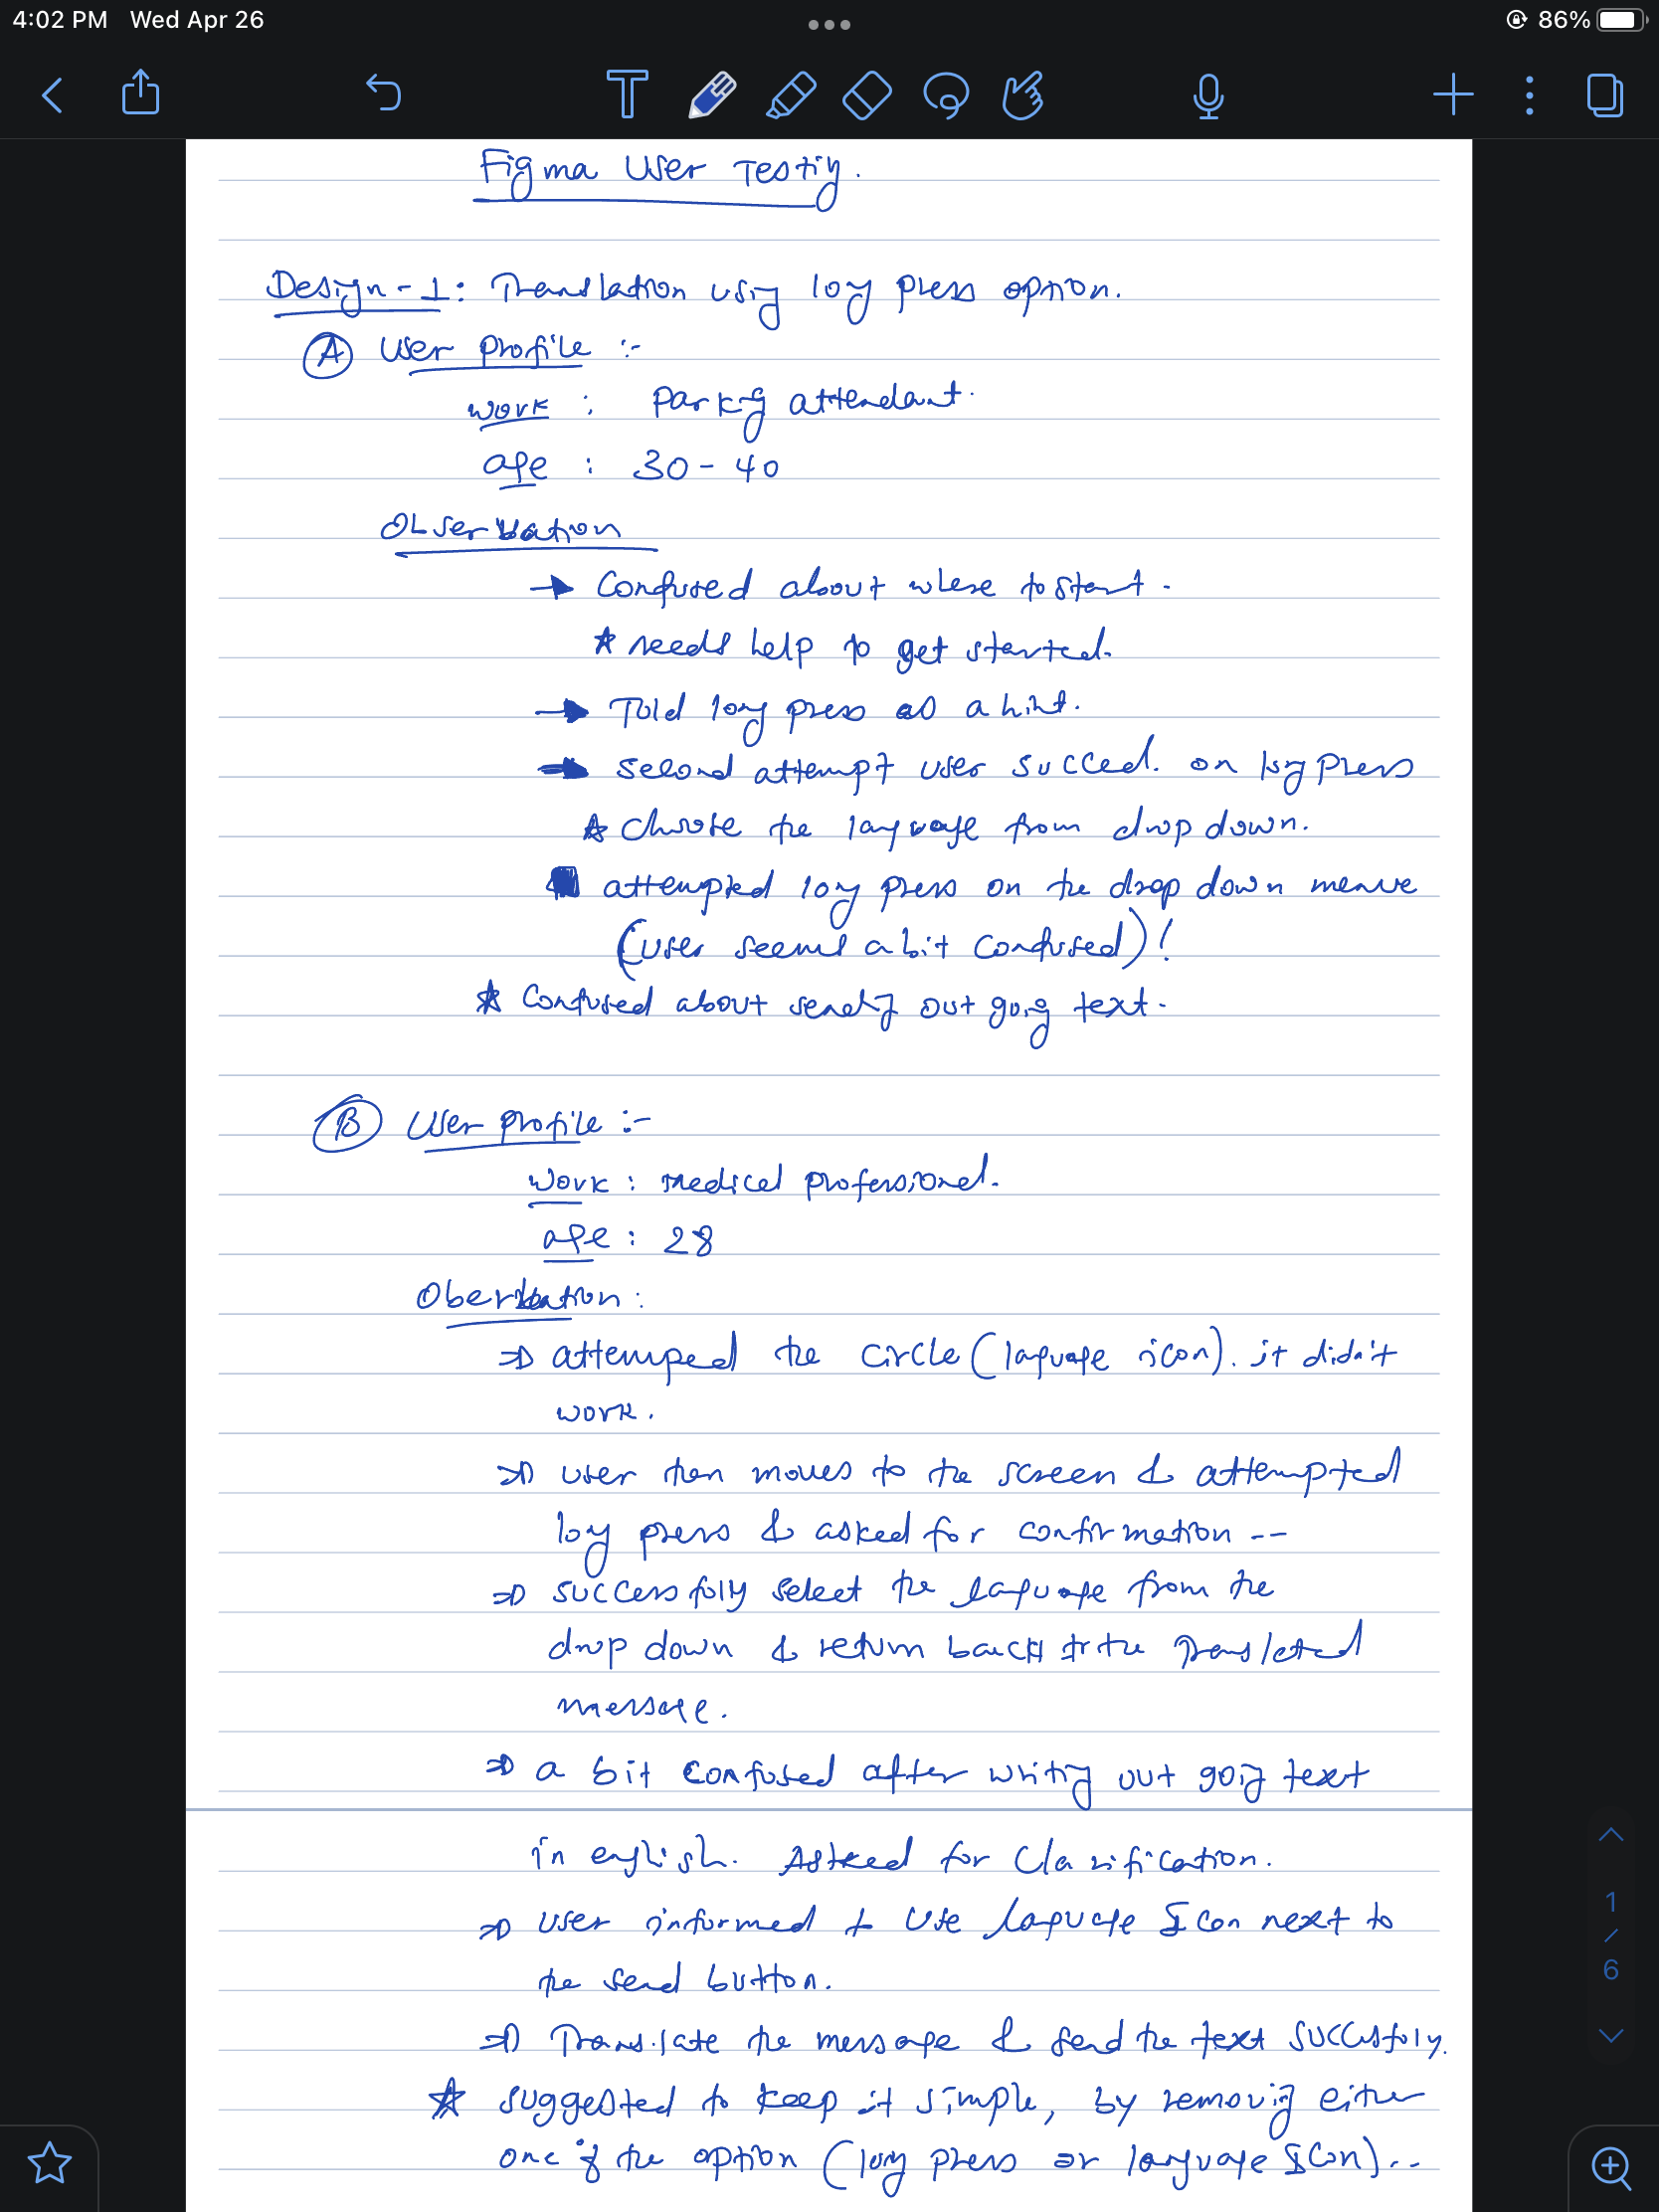 4:02 PM Wed Apr 26
86%
T
Figma User Testing.
Design-1: Translation using long press option.
A User profile :-
work : Parking attendant.
age : 30-40
Observation
→ Confused about where to start.
★ needs help to get started.
→ Told long press as a hint.
→ Second attempt user succeed. on long press
★ choose the language from drop down.
attempted long press on the drop down menue
(user seems a bit confused)!
★ Confused about sending out going text.
B User profile :-
work : medical professional.
age : 28
Oberbation :
⇒ attemped the circle (language icon). it didn't
work.
⇒ user then moves to the screen & attempted
long press & asked for confirmation --
⇒ successfoly select the language from the
drop down & return back to the Translated
message.
⇒ a bit confused after writing out going text
in english. Asked for Clarification.
⇒ user informed to use language Icon next to
the send button.
⇒ Translate the message & send the text succesfoly.
★ suggested to keep it simple, by removing either
one of the option (long press or language Icon)..
1
/
6